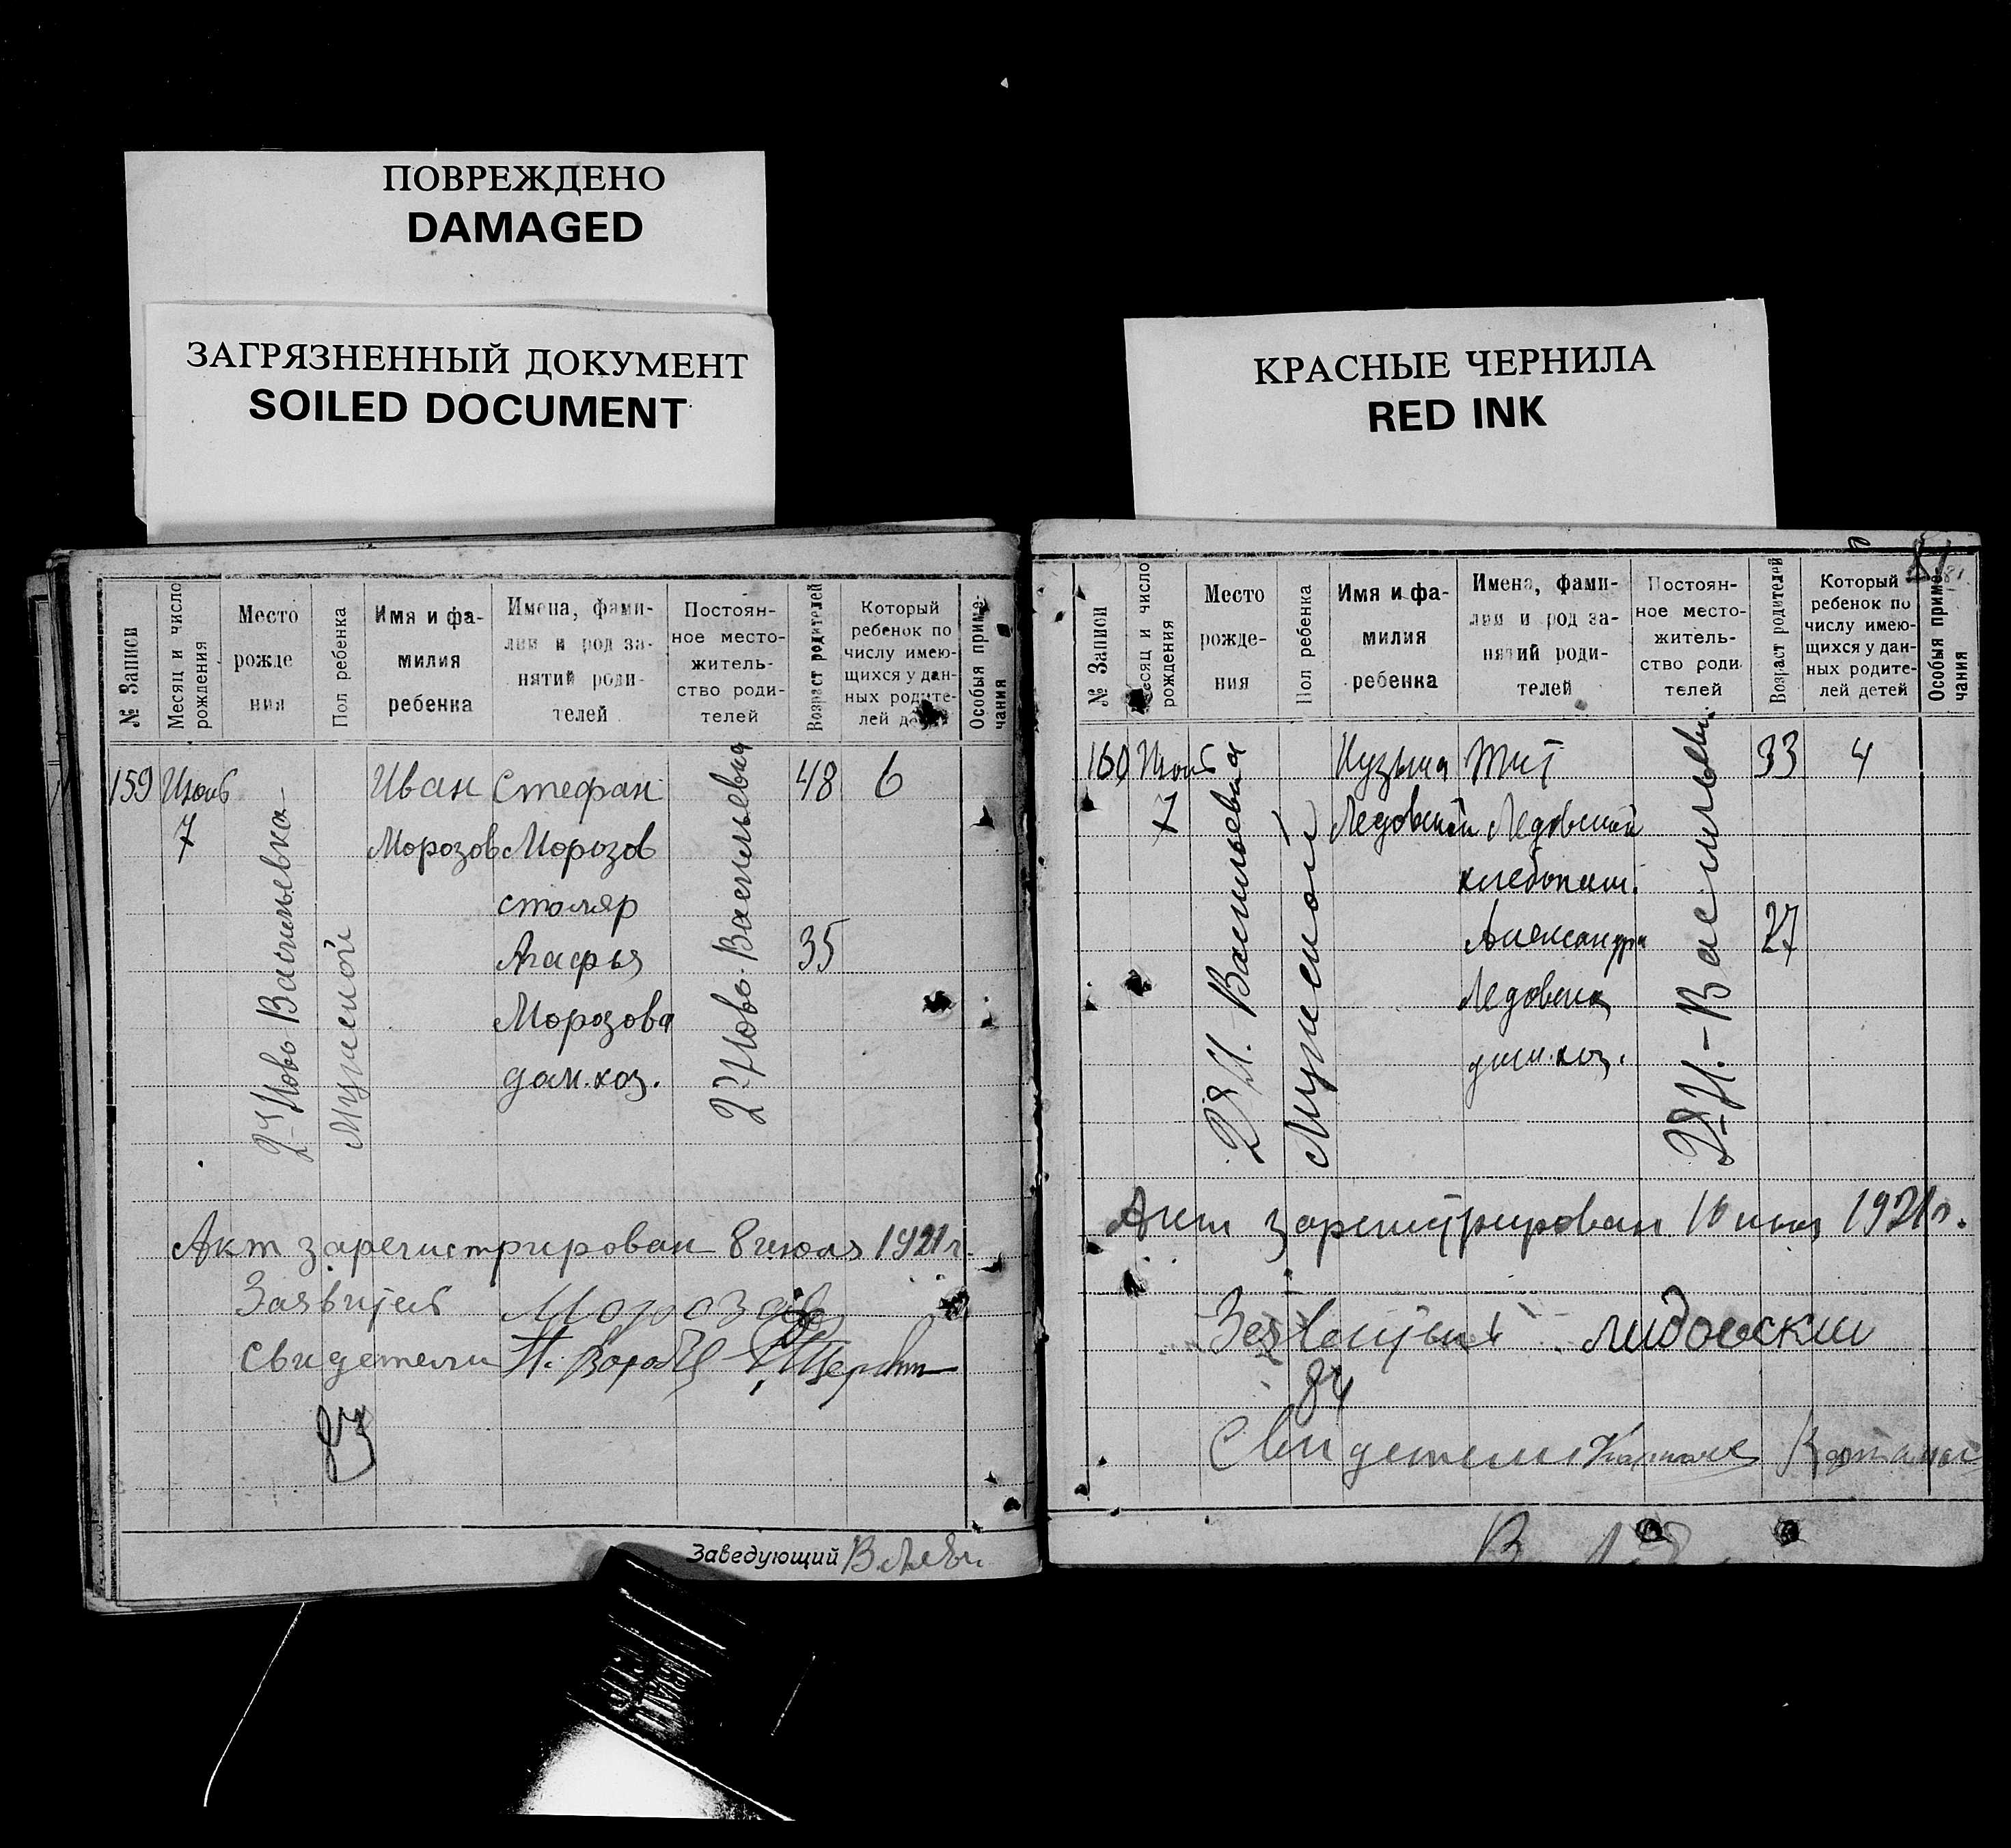 ПОВРЕЖДЕНО
DAMAGED
ЗАГРЯЗНЕННЫЙ ДОКУМЕНТ
SOILED DOCUMENT
КРАСНЫЕ ЧЕРНИЛА
RED INK
№ Записи
Месяц и число рождения
Место рожде ния
Пол ребенка
Имя и фа-
милия
ребенка
Имена, фами-
лии и род за-
нятий роди-
телей
Постоян-
ное место-
житель-
ство роди-
телей
Возраст родителей
Который
ребенок по
числу имею-
щихся у дан-
ных родите-
лей детей
Особыя приме-
чания
159 Июль Иван Стефан 48 6
7 Морозов Морозов
столяр
Агафья 35
Морозова
дом.хоз.
2я Ново Васильевка
Мужской
2я Ново-Васильевка
Акт зарегистрирован 8 июля 1921 г.
Заявитель Морозов
Свидетели
Заведующий
81
№ Записи
Месяц и число
рождения
Место
рожде-
ния
Пол ребенка
Имя и фа-
милия
ребенка
Имена, фами-
лии и род за-
нятий роди-
телей
Постоян-
ное место-
житель-
ство роди
телей
Возраст родителей
Который
ребенок по
числу имею-
щихся у дан-
ных родите-
лей детей
Особыя приме
чания
160 Июль Кузьма Тит 33 4
7 Ледовской Ледовской
хлебопаш.
Александра 27
Ледовска
дом.хоз.
2я Н.-Васильевка
Мужской
2я Н.-Васильевк.
Акт зарегистрирован 10 июля 1921 г.
Заявитель Лидовскии
84
Свидетели